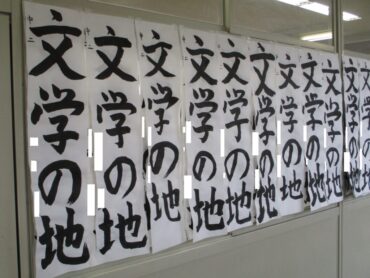 文学の地
中二
文学の地
中二
文学の地
文学の地
文学の地
文学の地
文学の地
文学の地
文学の地
文学の地